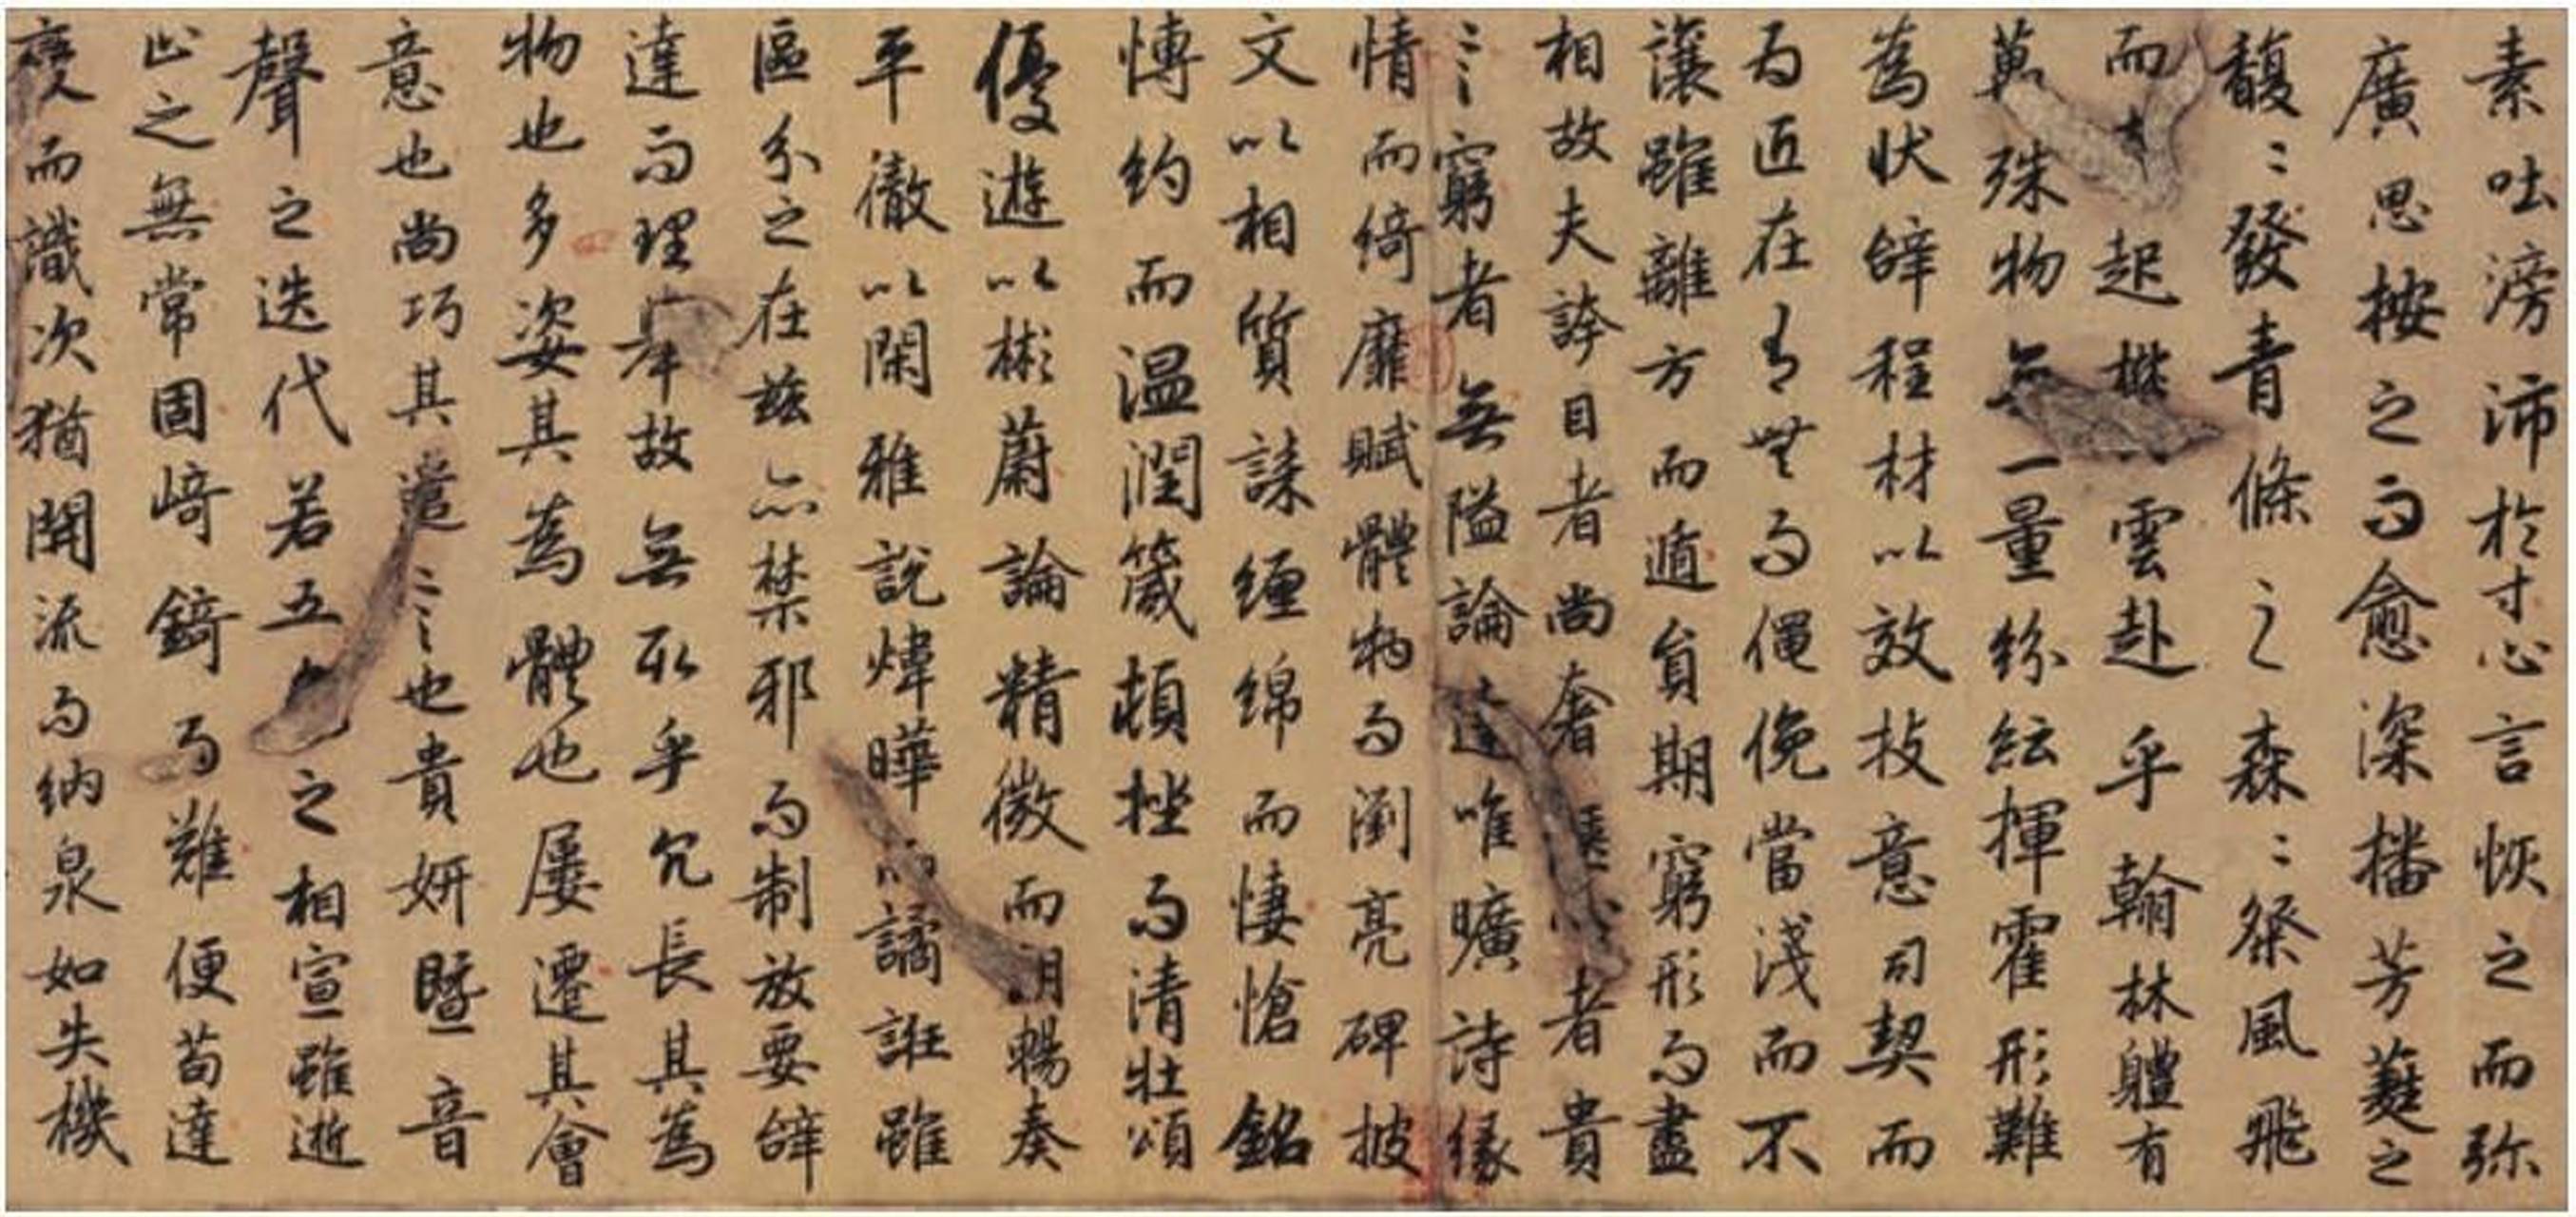 素吐滂沛於寸心言恢之而弥
廣思按之而愈深播芳蕤之
馥〻發青條之森〻粲風飛
而起欻雲赴乎翰林體有
萬殊物一量紛紜揮霍形難
為状辞程材以效技意司契而
為匠在有無而僶俛當淺而不
讓雖離方而遁員期窮形而盡
相故夫誇目者尚奢者貴
言窮者無隘論達唯曠詩緣
情而綺靡賦體物而瀏亮碑披
文以相質誄纏綿而悽愴銘
博約而温潤箴頓挫而清壯頌
優遊以彬蔚論精微而朗暢奏
平徹以閑雅說煒曄而譎誑雖
區分之在兹亦禁邪而制放要辞
達而理舉故無取乎冗長其為
物也多姿其為體也屢遷其會
意也尚巧其遣言也貴妍暨音
聲之迭代若五色之相宣雖逝
止之無常固崎錡而難便苟達
變而識次猶開流而納泉如失機